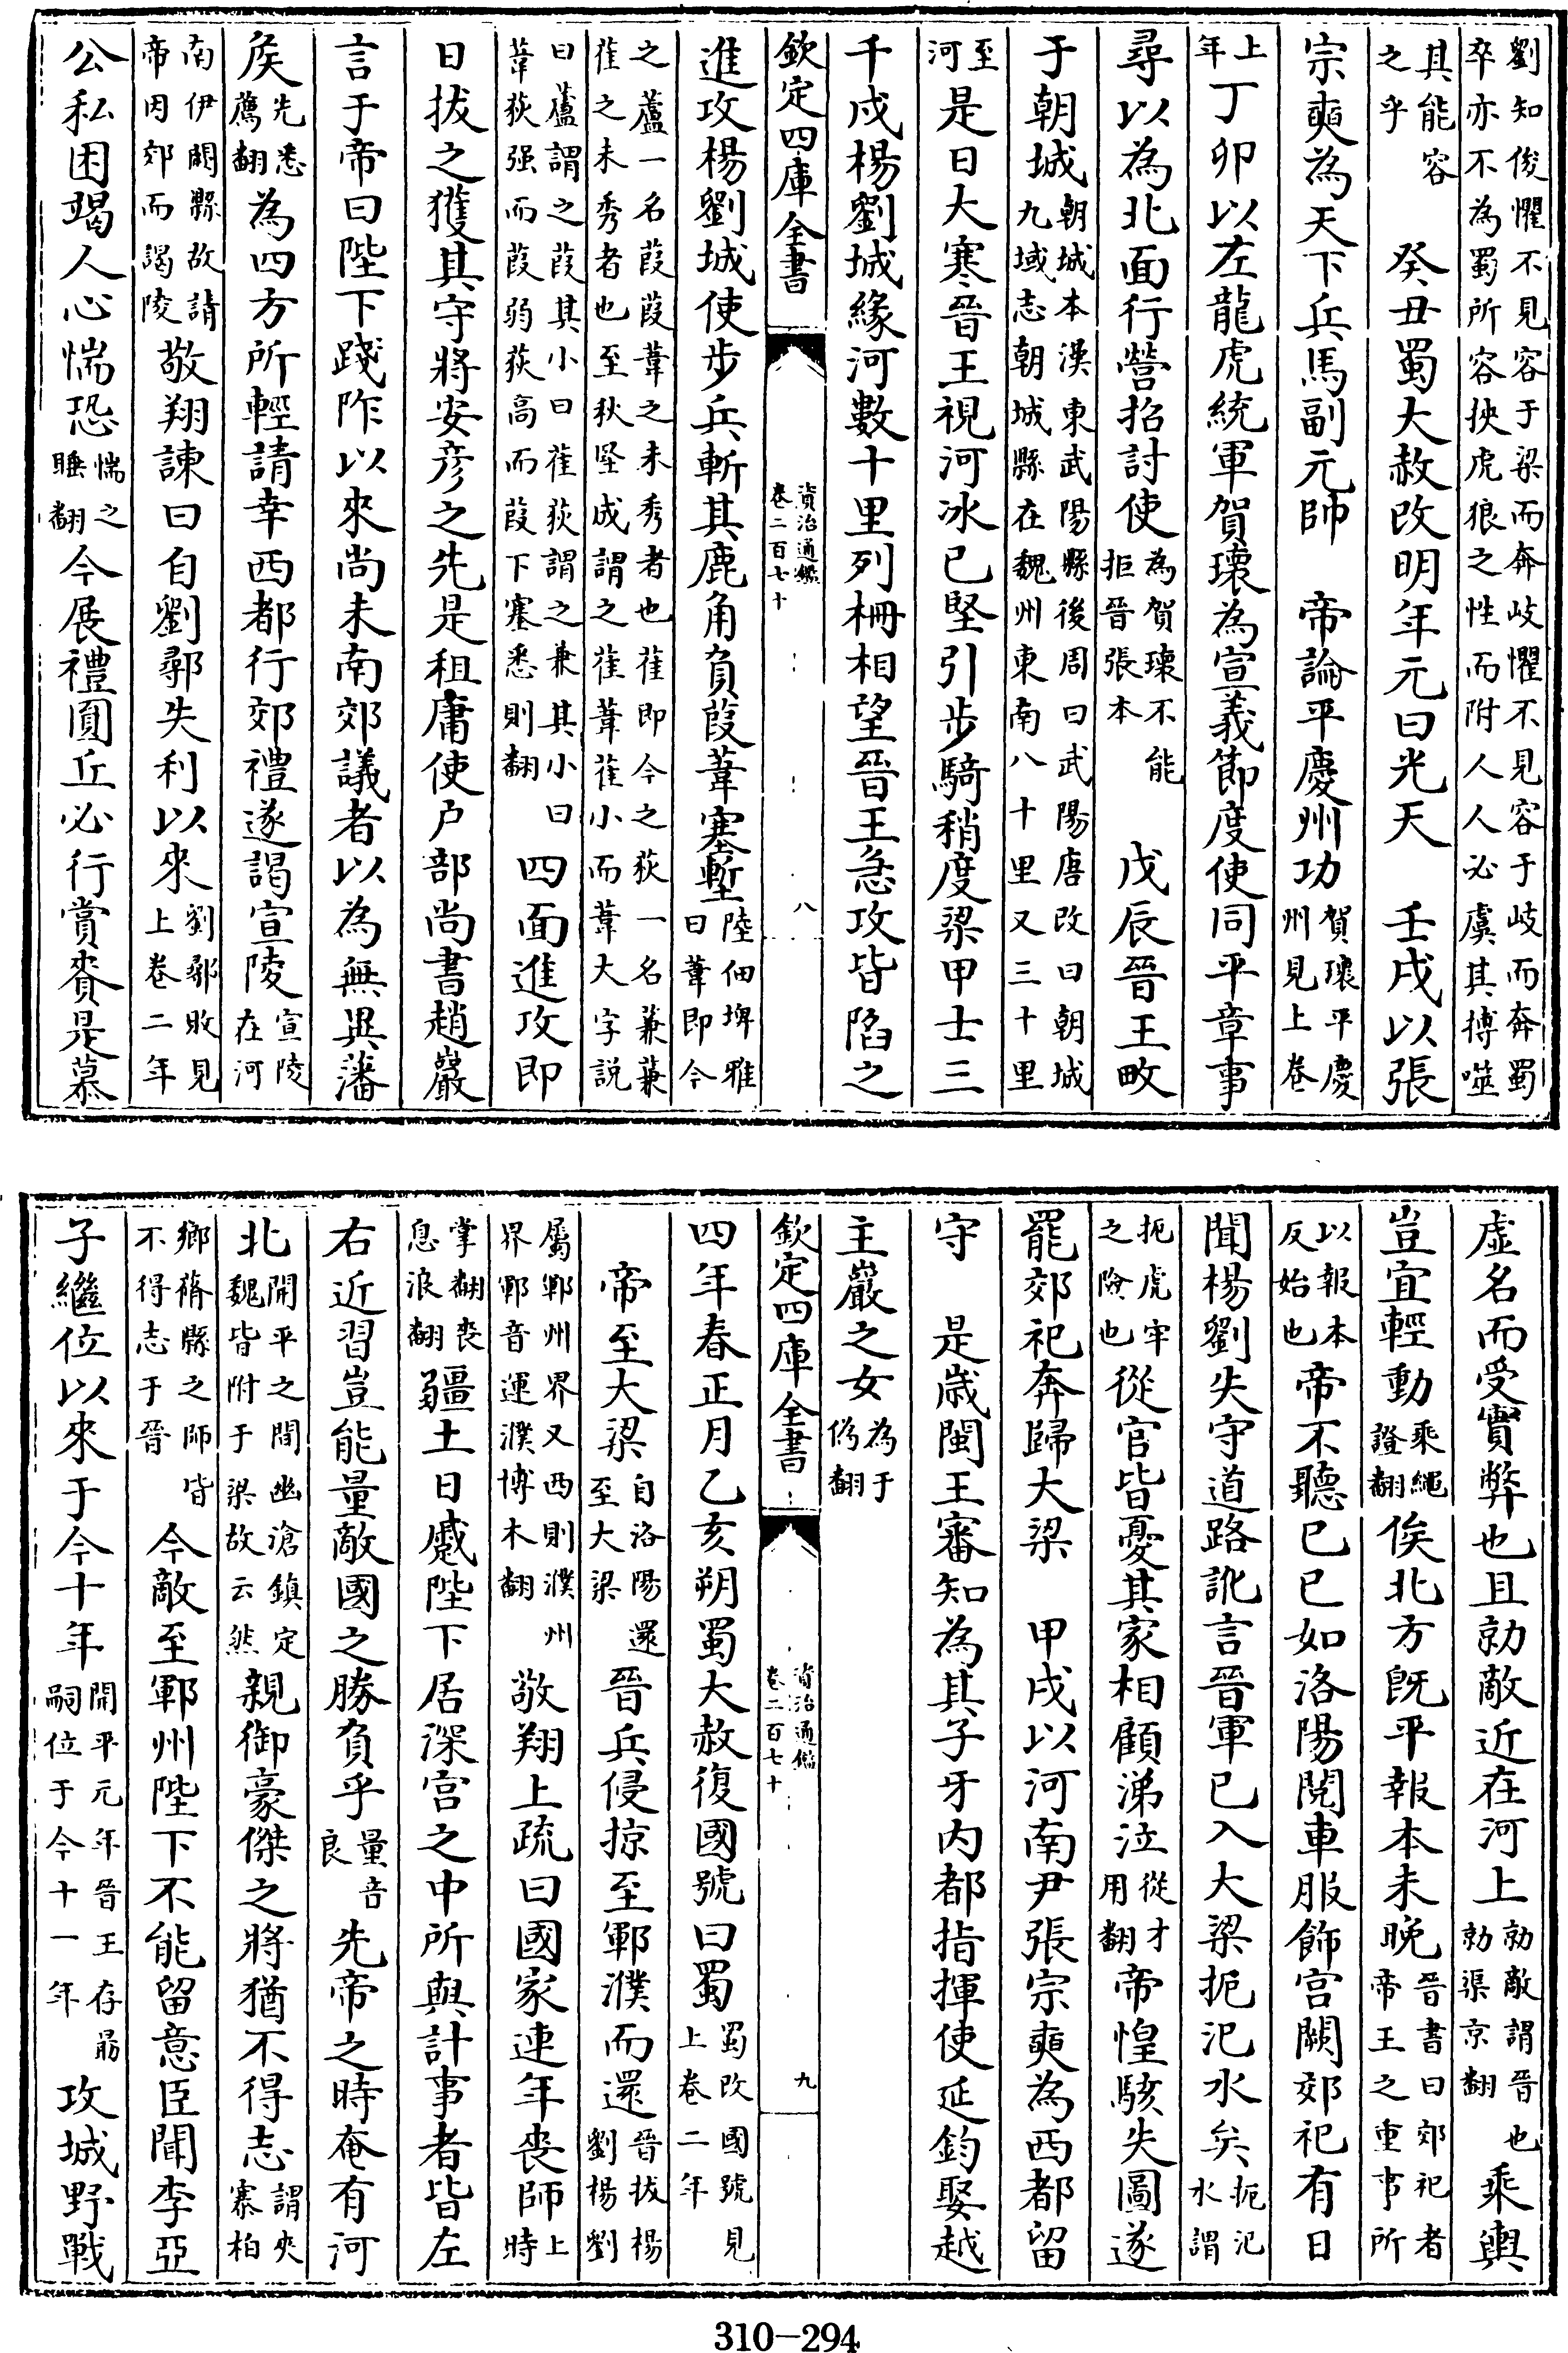 劉知俊懼不見容于梁而奔岐懼不見容于岐而奔蜀
卒亦不為蜀所容挾虎狼之性而附人人必虞其搏噬
其能容之乎 癸丑蜀大赦改明年元曰光天 壬戌以張
宗奭為天下兵馬副元帥 帝論平慶州功賀瓌平慶州見上卷
上年丁卯以左龍虎統軍賀瓌為宣義節度使同平章事
尋以為北面行營招討使為賀瓌不能拒晉張本 戊辰晉王畋
于朝城朝城本漢東武陽縣後周曰武陽唐改曰朝城九域志朝城縣在魏州東南八十里又三十里
至河是日大寒晉王視河冰已堅引步騎稍度梁甲士三
千戍楊劉城緣河數十里列柵相望晉王急攻皆陷之
欽定四庫全書 資治通鑑卷二百七十 八
進攻楊劉城使步兵斬其鹿角負葭葦塞塹陸佃埤雅曰葦即今
之蘆一名葭葭葦之未秀者也萑即今之荻一名蒹蒹
萑之未秀者也至秋堅成謂之萑葦萑小而葦大字説
曰蘆謂之葭其小曰萑荻謂之蒹其小曰葦荻强而葭弱荻高而葭下塞悉則翻四面進攻即
日拔之獲其守將安彦之先是租庸使户部尚書趙巖
言于帝曰陛下踐阼以來尚未南郊議者以為無異藩
侯先悉薦翻為四方所輕請幸西都行郊禮遂謁宣陵宣陵在河
南伊闕縣故請帝因郊而謁陵敬翔諫曰自劉鄩失利以來劉鄩敗見上卷二年
公私困竭人心惴恐惴之睡翻今展禮圓丘必行賞賚是慕
虛名而受實弊也且勍敵近在河上勍敵謂晉也勍渠京翻乘輿
豈宜輕動乘繩證翻俟北方既平報本未晚晉書曰郊祀者帝王之重事所
以報本反始也帝不聽已已如洛陽閲車服飾宫闕郊祀有日
聞楊劉失守道路訛言晉軍已入大梁扼汜水矣扼汜水謂
扼虎牢之險也從官皆憂其家相顧涕泣從才用翻帝惶駭失圖遂
罷郊祀奔歸大梁 甲戌以河南尹張宗奭為西都留
守 是歲閩王審知為其子牙内都指揮使延鈞娶越
主巖之女為于偽翻
欽定四庫全書 資治通鑑卷二百七十 九
四年春正月乙亥朔蜀大赦復國號曰蜀蜀改國號見上卷二年
帝至大梁自洛陽還至大梁晉兵侵掠至鄆濮而還晉拔楊劉楊劉
屬鄆州界又西則濮州界鄆音運濮博木翻敬翔上疏曰國家連年喪師上時
掌翻喪息浪翻疆土日蹙陛下居深宫之中所與計事者皆左
右近習豈能量敵國之勝負乎量音良先帝之時奄有河
北開平之間幽滄鎮定魏皆附于梁故云然親御豪傑之將猶不得志謂夾寨柏
鄉蓨縣之師皆不得志于晉今敵至鄆州陛下不能留意臣聞李亞
子繼位以來于今十年開平元年晉王存勗嗣位于今十一年攻城野戰
310-294